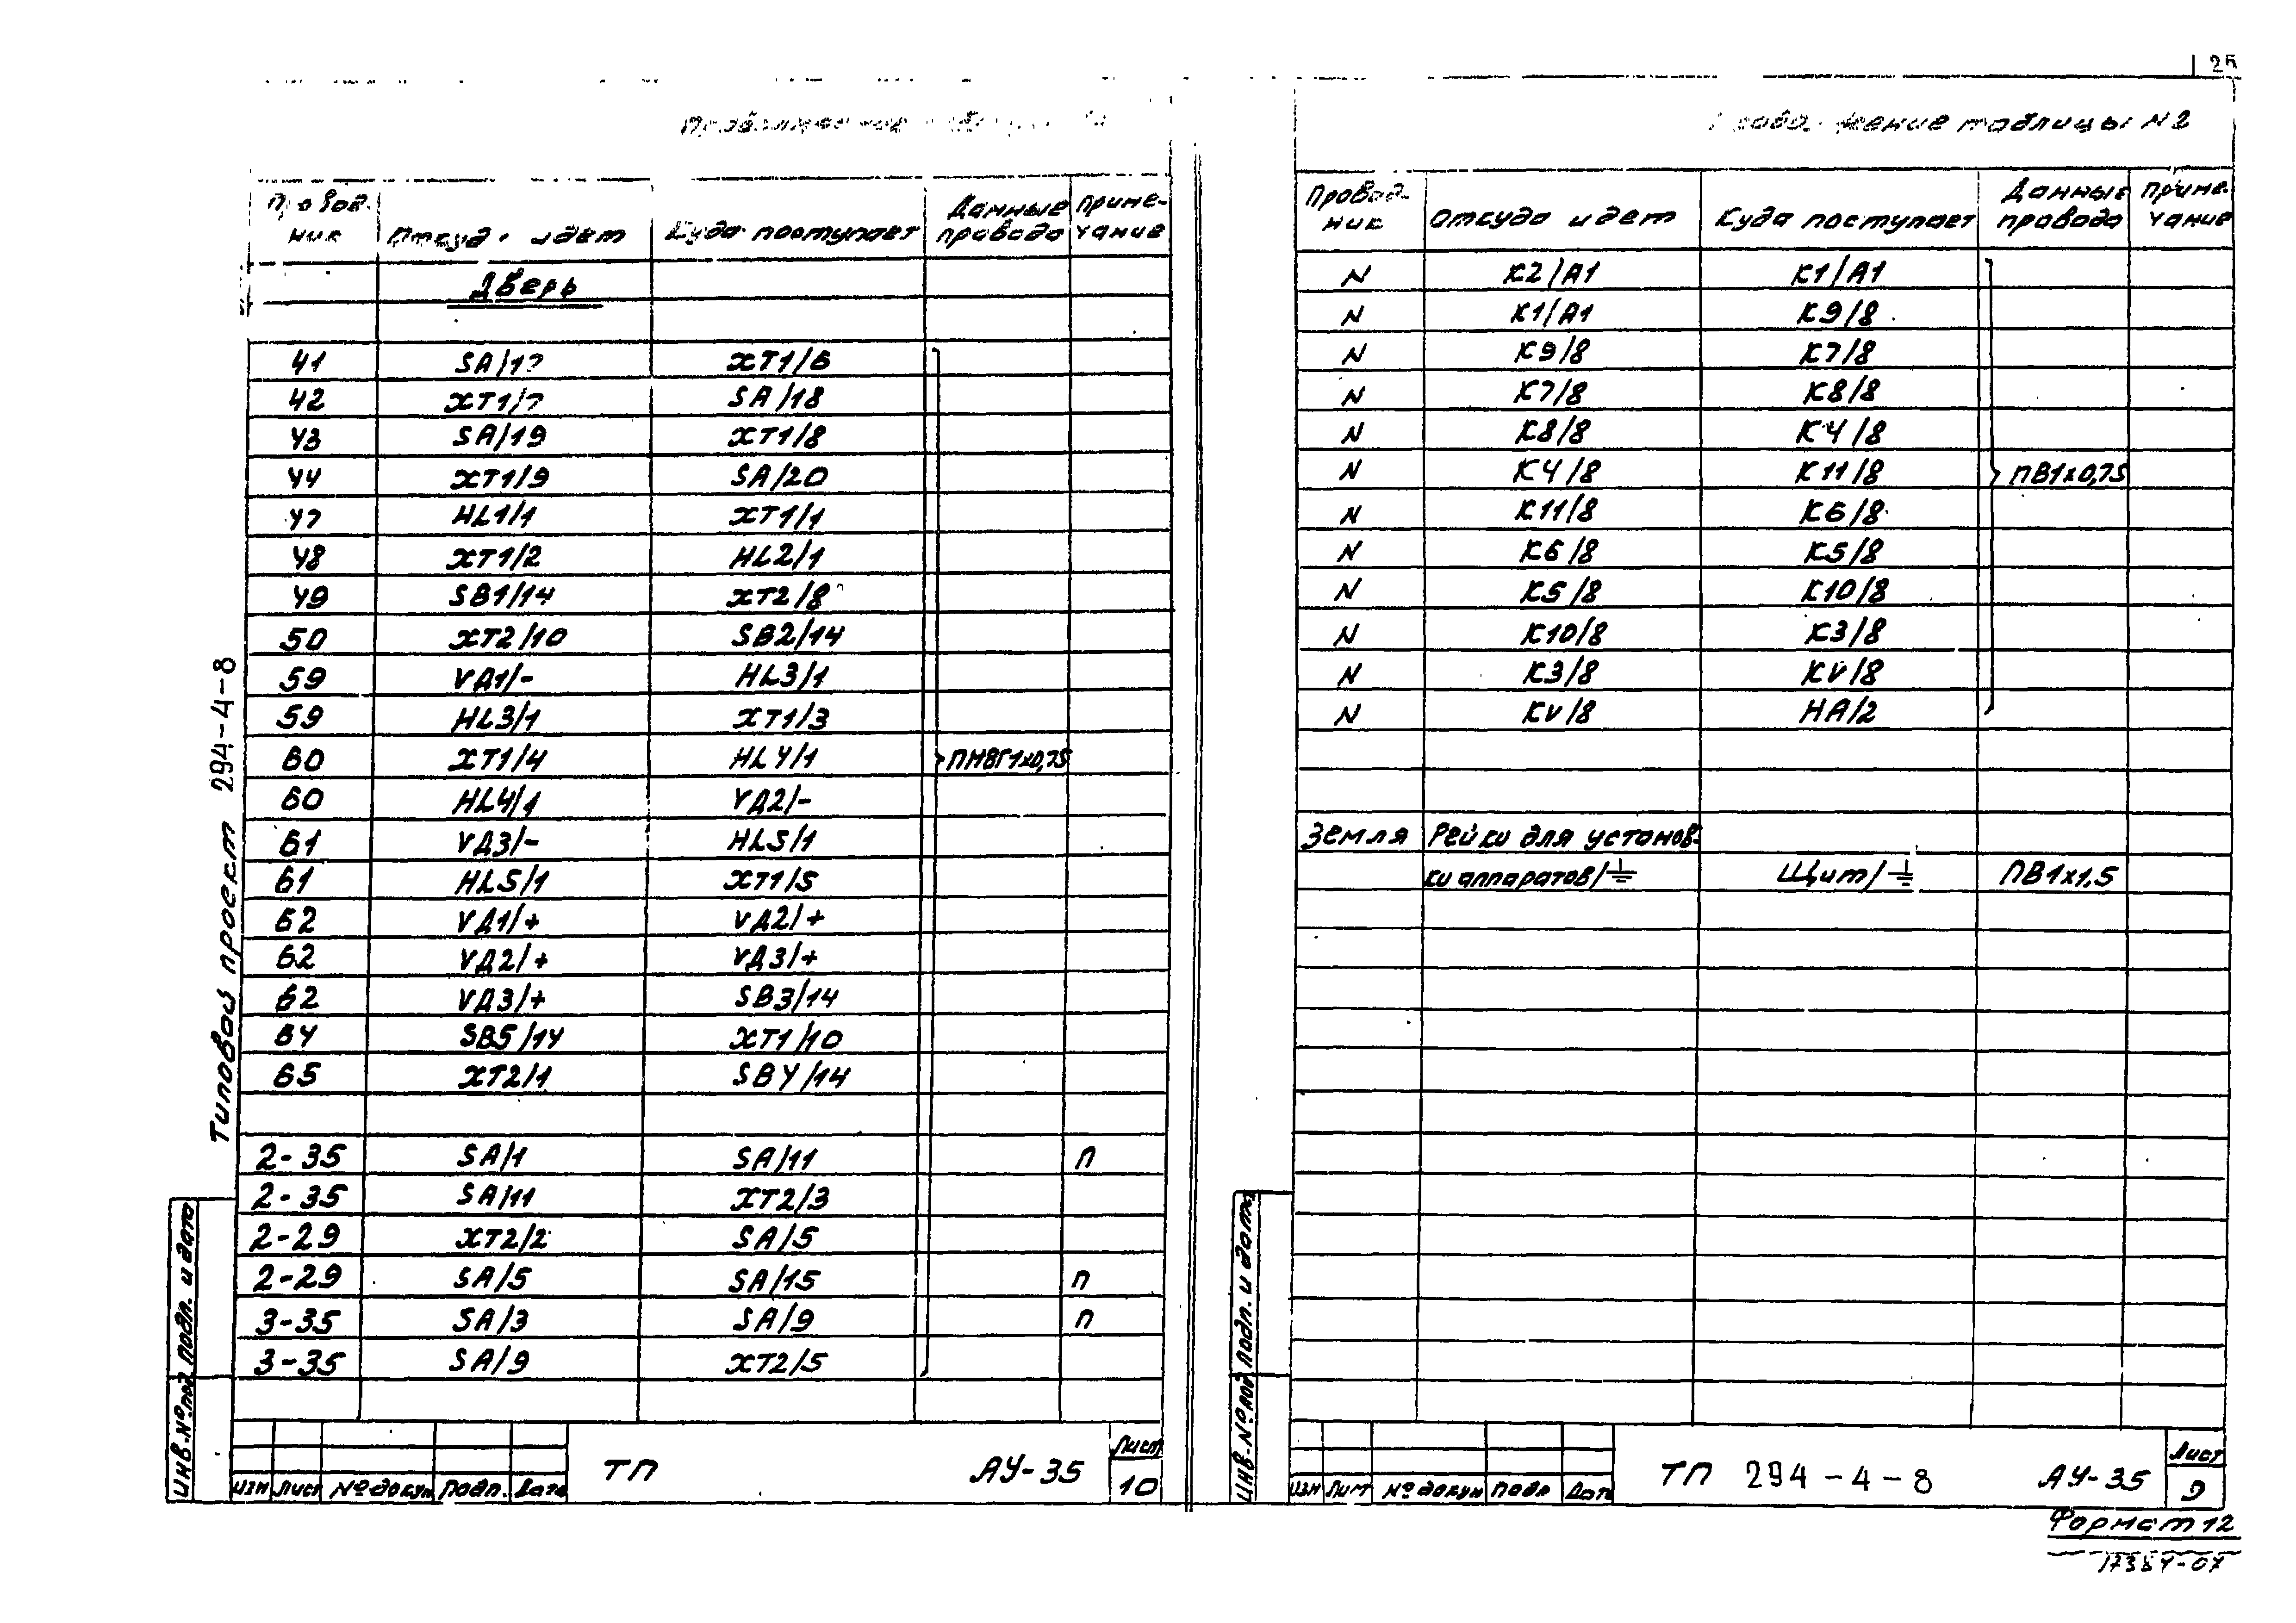 25
таблицы N2
Провод- Откуда идет Куда поступает Данные Приме-
ник провода чание
Дверь
41 SA/17 XT1/6
42 XT1/7 SA/18
43 SA/19 XT1/8
44 XT1/9 SA/20
47 HL1/1 XT1/1
48 XT1/2 HL2/1
49 SB1/14 XT2/8
50 XT2/10 SB2/14
59 VД1/- HL3/1
59 HL3/1 XT1/3
60 XT1/4 HL4/1 ПНВГ1х0,75
60 HL4/1 VД2/-
61 VД3/- HL5/1
61 HL5/1 XT1/5
62 VД1/+ VД2/+
62 VД2/+ VД3/+
62 VД3/+ SB3/14
64 SB5/14 XT1/10
65 XT2/1 SB4/14
2-35 SA/1 SA/11 П
2-35 SA/11 XT2/3
2-29 XT2/2 SA/5
2-29 SA/5 SA/15 П
3-35 SA/3 SA/9 П
3-35 SA/9 XT2/5
Типовой проект 294-4-8
Инв.№под Подп. и дата
Изм Лист №докум Подп. Дата
ТП АУ-35
Лист
10
Провод- Откуда идет Куда поступает Данные Приме-
ник провода чание
N К2/А1 К1/А1
N К1/А1 К9/8
N К9/8 К7/8
N К7/8 К8/8
N К8/8 К4/8
N К4/8 К11/8 ПВ1х0,75
N К11/8 К6/8
N К6/8 К5/8
N К5/8 К10/8
N К10/8 К3/8
N К3/8 КV/8
N КV/8 НА/2
Земля Рейки для установ-
ки аппаратов/⏚ Щит/⏚ ПВ1х1,5
Инв.№под Подп. и дата
Изм Лист №докум Подп Дата
ТП 294-4-8 АУ-35
Лист
9
Формат 12
17384-07